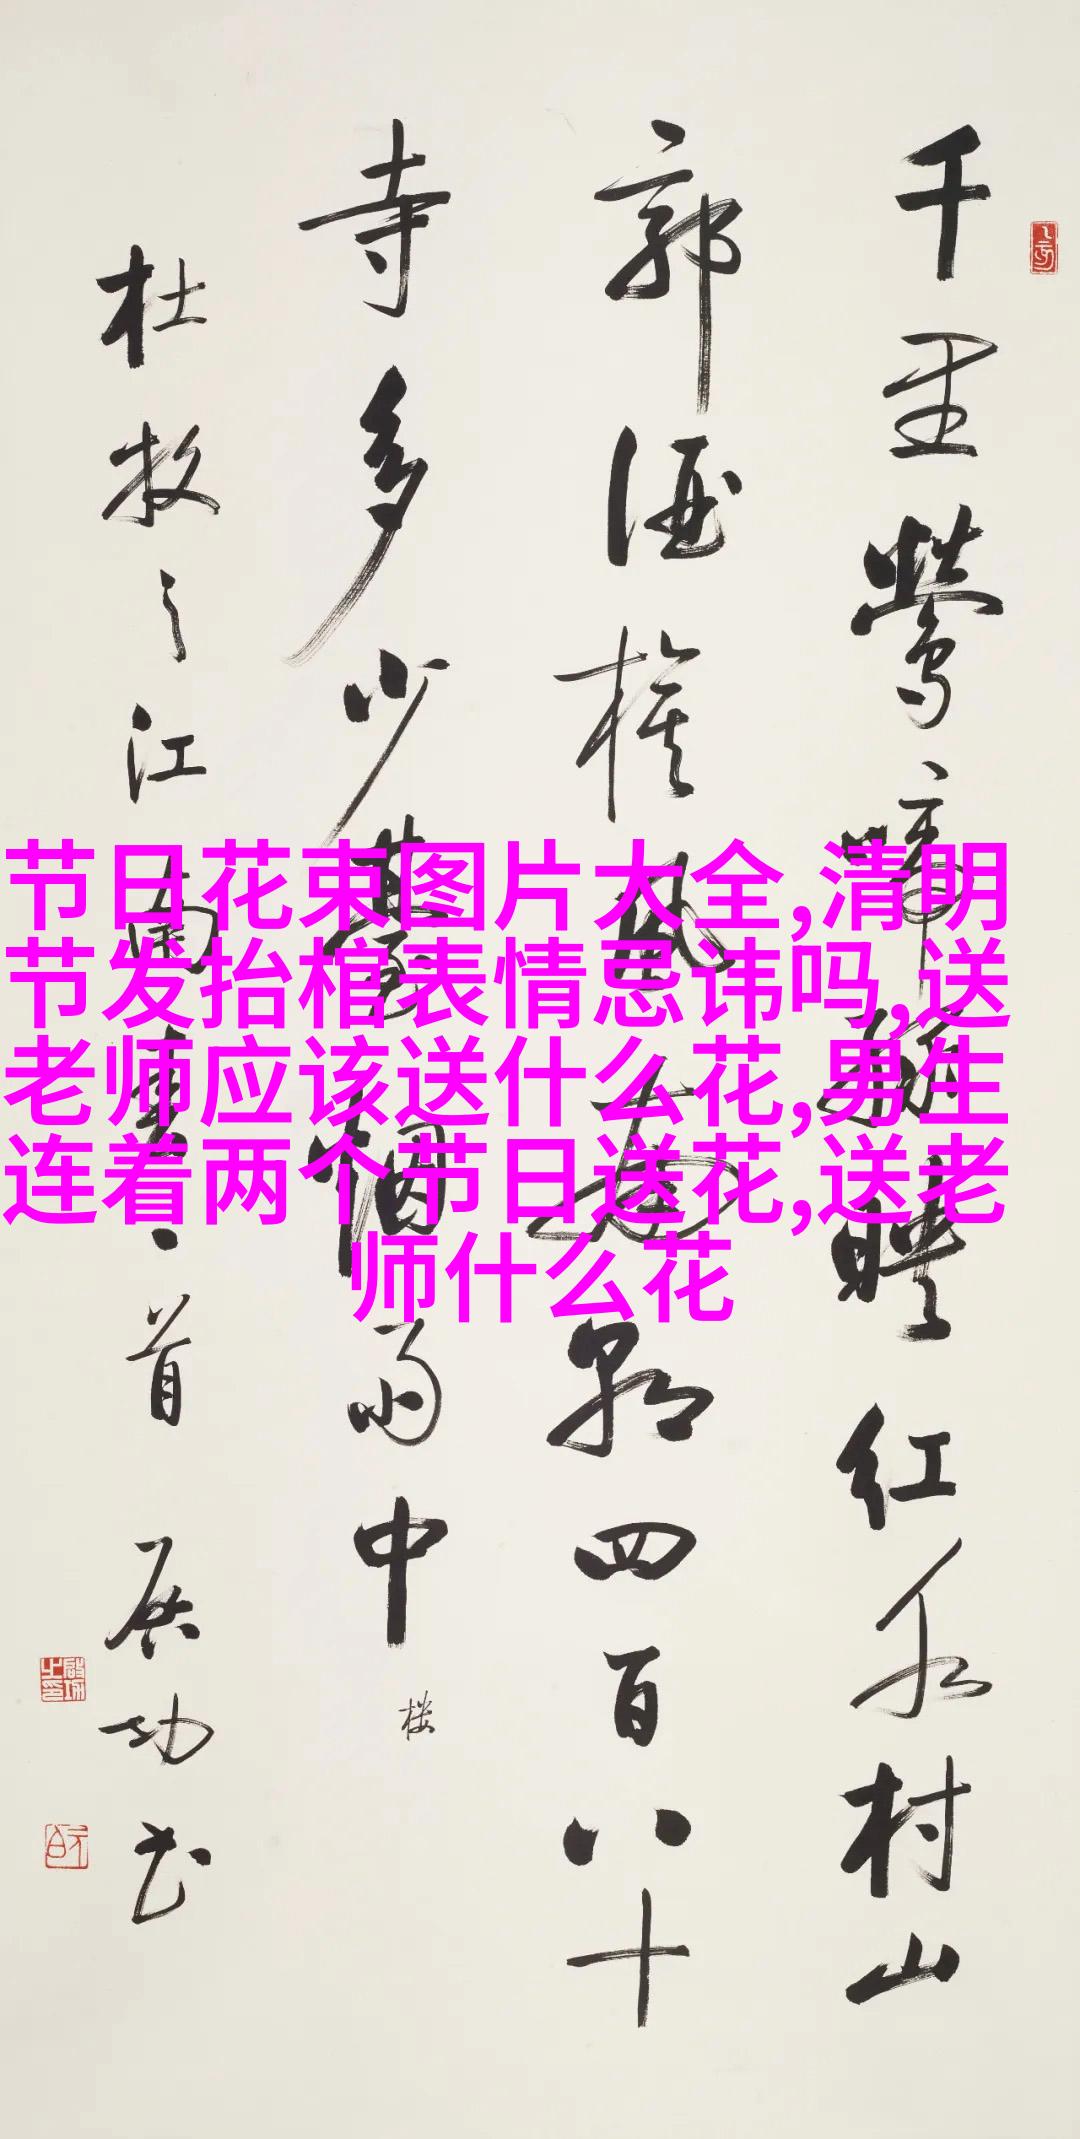 千里鶯啼綠映紅水村山
郭酒旗風南朝四百八十
寺多少臺烟雨中
楼
杜牧之江南春一首 启功书
节日花束图片大全,清明
节发抬棺表情忌讳吗,送
老师应该送什么花,男生
连着两个节日送花,送老
师什么花